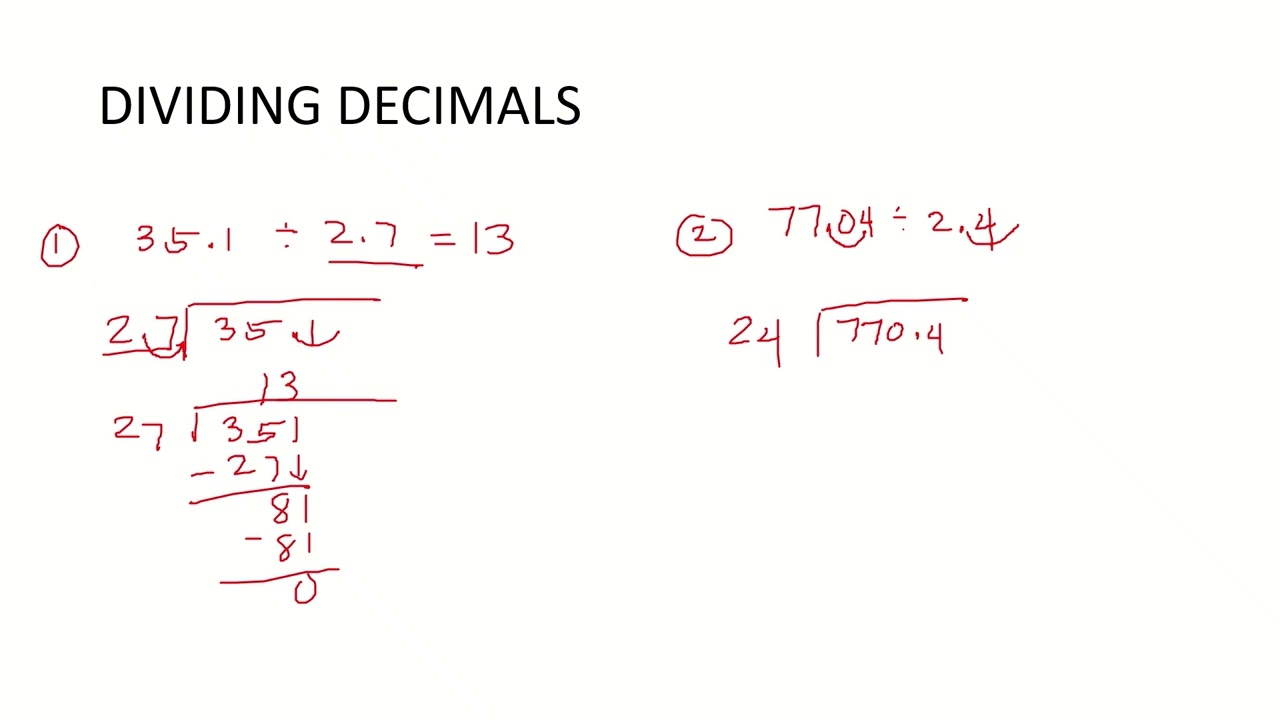 DIVIDING DECIMALS
① 35.1 ÷ 2.7 = 13
2.7 35.1
13
27 351
- 27
81
- 81
0
② 77.04 ÷ 2.4
24 770.4